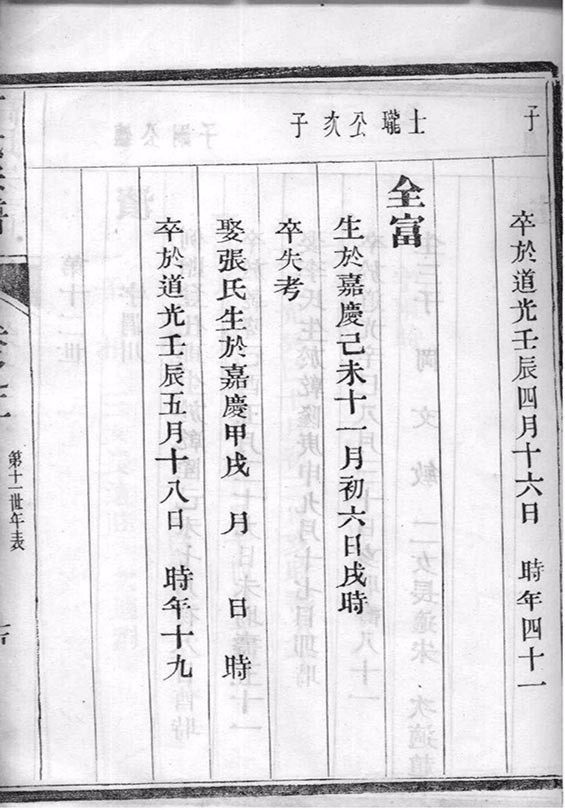 子
卒於道光壬辰四月十六日 時年四十一
士瓏公次子
全富
生於嘉慶己未十一月初六日戌時
卒失考
娶張氏生於嘉慶甲戌 月 日 時
卒於道光壬辰五月十八日 時年十九
第十一世年表